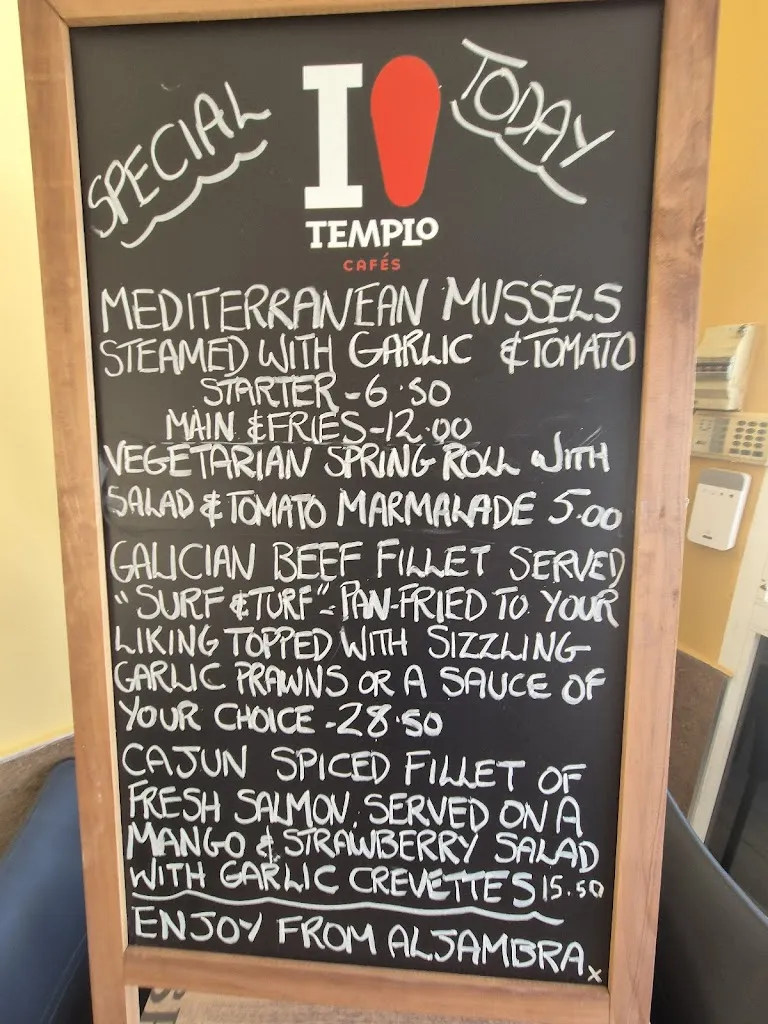 SPECIAL
TODAY
I
TEMPLO
CAFÉS
MEDITERRANEAN MUSSELS
STEAMED WITH GARLIC & TOMATO
STARTER - 6.50
MAIN & FRIES - 12.00
VEGETARIAN SPRING ROLL WITH
SALAD & TOMATO MARMALADE 5.00
GALICIAN BEEF FILLET SERVED
"SURF & TURF" - PAN-FRIED TO YOUR
LIKING TOPPED WITH SIZZLING
GARLIC PRAWNS OR A SAUCE OF
YOUR CHOICE - 28.50
CAJUN SPICED FILLET OF
FRESH SALMON, SERVED ON A
MANGO & STRAWBERRY SALAD
WITH GARLIC CREVETTES 15.50
ENJOY FROM ALJAMBRA x